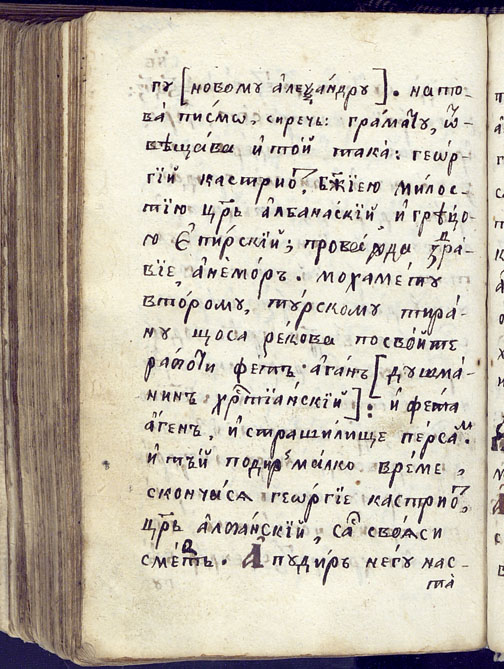 гу [новому алеѯандру]. на то-
ва писмо, сиречь: грамату, ѿ-
вѣщава и той така: геор-
гїй кастриѡ, бж҃їею милос-
тїю цр҃ь албанаскїй, и грꙋцо-
ю єпирскїй; проважда здра-
вїе, анемор. мохамету
второму, турскому тира-
ну щоса рекова посвойте
работи фетъ аганъ [душма-
нинъ хр҃тїанскїй]: и фета
агенъ, и страшилище перса.м
и тъй подиръ малко време,
скончася георгїе кастриѡ,
цр҃ь алманскїй, са своѧси
смертъ. А пудиръ негу нас-
та